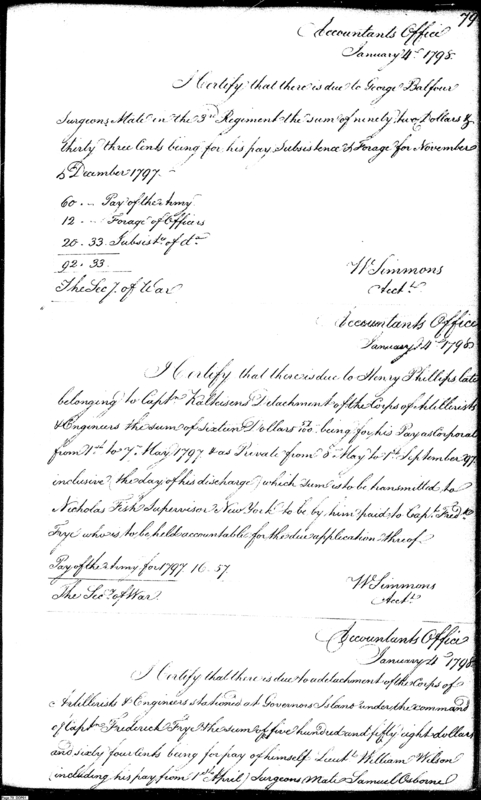 79
Accountants Office
January 4th 1798.
I Certify that there is due to George Balfour
Surgeons Mate in the 3rd Regiment the sum of ninety two Dollars &
thirty three Cents being for his pay, Subsistence & Forage for November
& December 1797.
60 . .. Pay of the Army
12 . .. Forage of Officers
20 . 33 Subsistce of do
92 . 33
The Secy. of War
Wm Simmons
Acctt
Accountants Office
January 4 1798
I Certify that there is due to Henry Phillips late
belonging to Captn Kalteisens Detachment of the Corps of Artillerists
& Engineers the sum of sixteen Dollars being for his Pay as Corporal
from 1st to 7th May 1797 & as Private from 8 May to 1st September 97
inclusive (the day of his discharge) which sum is to be transmitted to
Nicholas Fish Supervisor New York to be by him paid to Capt. Fredk
Frye who is to be held accountable for the due application thereof.
Pay of the Army for 1797. 16. 57.
The Secy of War.
Wm Simmons
Acctt
Accountants Office
January 4th 1798
I Certify that there is due to a detachment of the Corps of
Artillerists & Engineers stationed at Governors Island under the command
of Captn Frederick Frye the sum of five hundred and fifty eight dollars
and sixty four Cents being for pay of himself Lieutt William Wilson
(including his pay from 1st April) Surgeons Mate Samuel Osborne